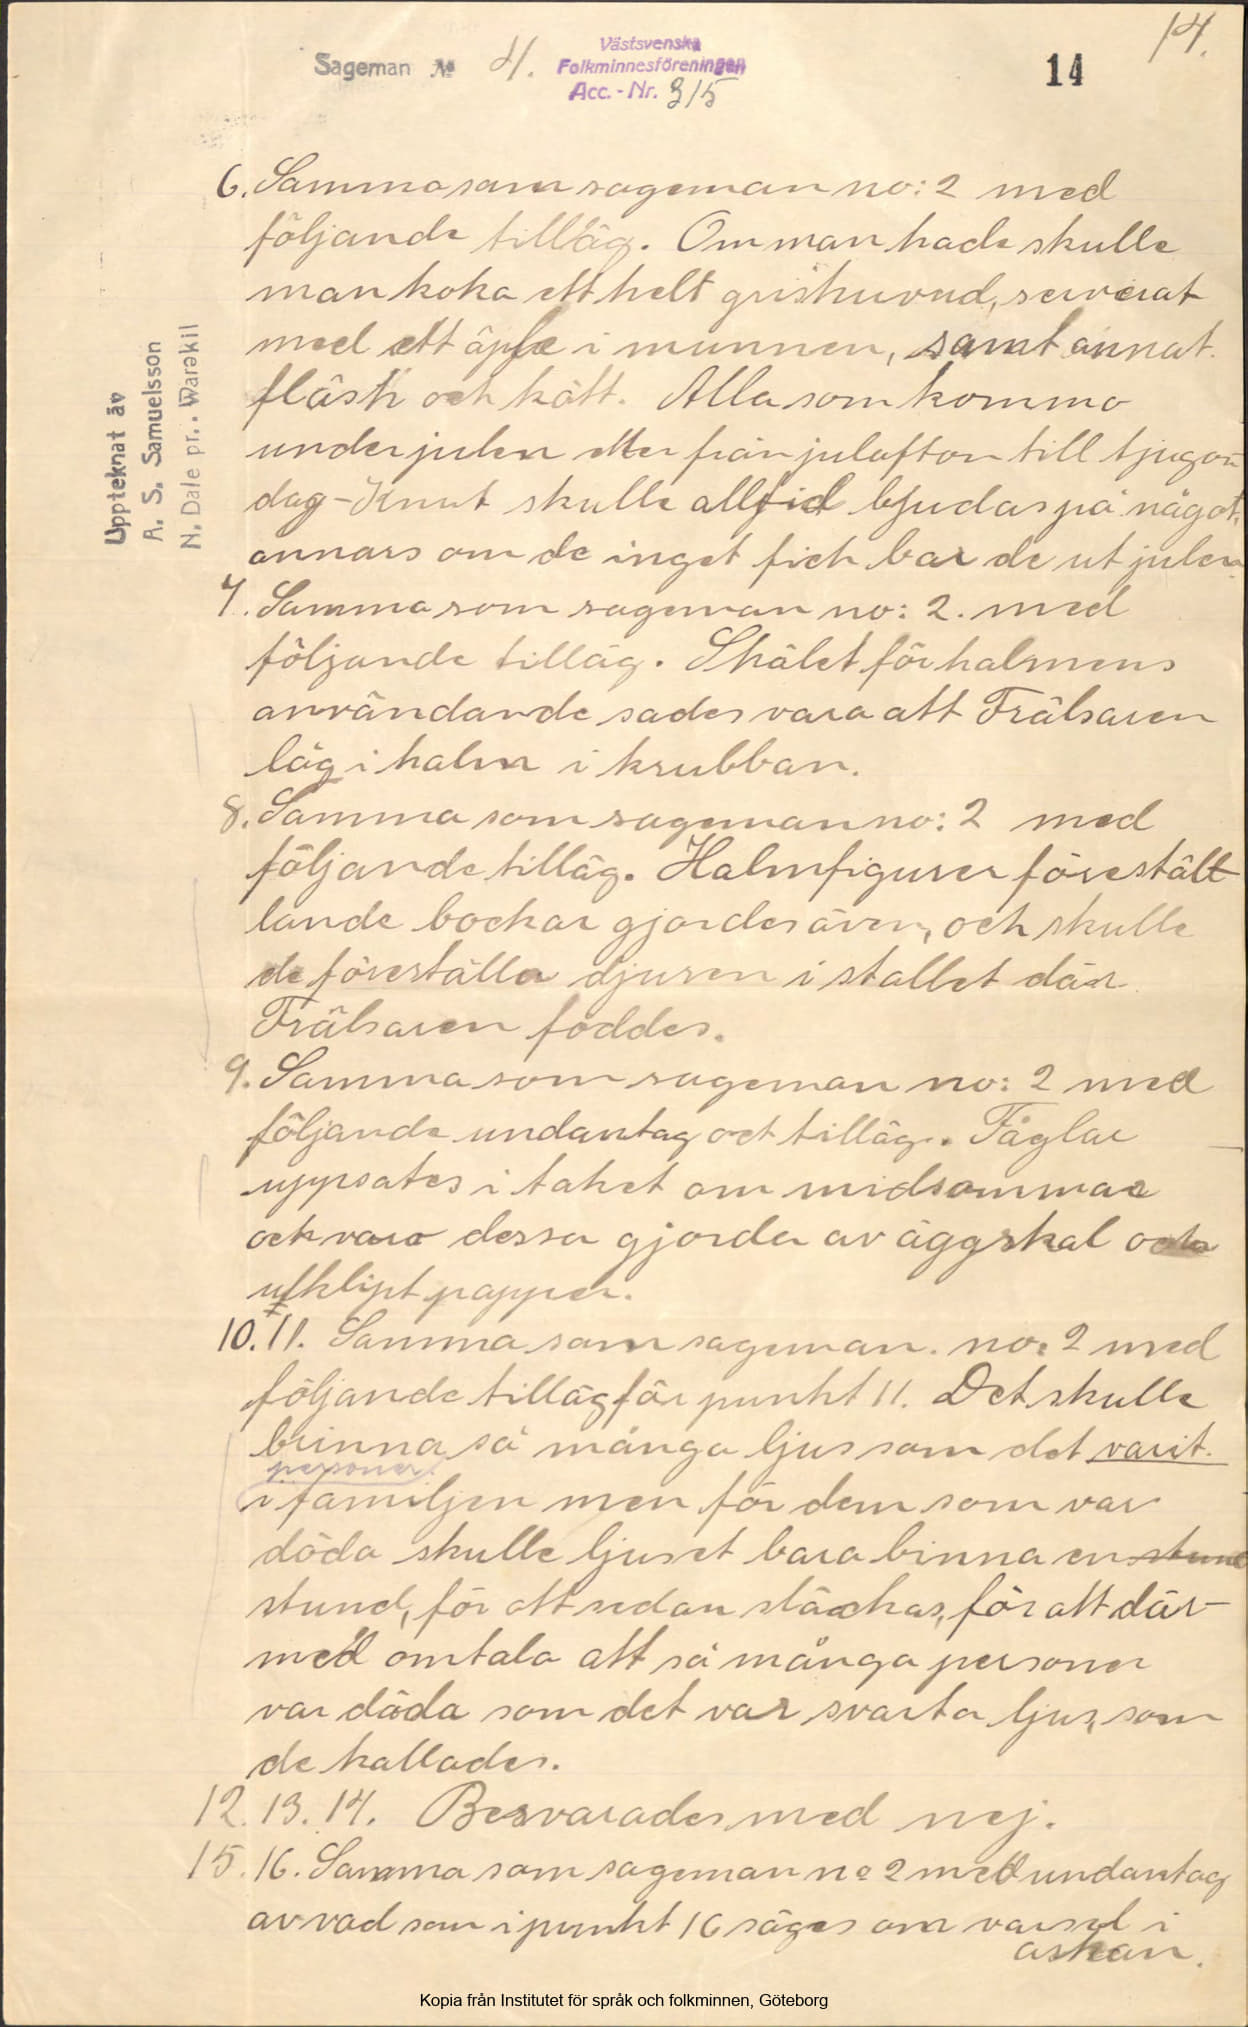 14.
Sageman № 4.
Västsvenska
Folkminnesföreningen
Acc.-Nr. 315
14
Uppteknat av
A. S. Samuelsson
N. Dale pr. Varekil
6. Samma som sageman no: 2 med
följande tilläg. Om man hade skulle
man koka ett helt grishuvud, serverat
med ett äple i munnen, samt annat
fläsk och kött. Alla som kommo
under julen eller från julafton till tjugon
dag-Knut skulle alltid bjudas på något,
annars om de inget fick bar de ut julen
7. Samma som sageman no: 2. med
följande tilläg. Skälet för halmens
användande sades vara att Frälsaren
låg i halm i krubban.
8. Samma som sageman no: 2 med
följande tilläg. Halmfigurer förestält
lande bockar gjordes även, och skulle
de föreställa djuren i stallet där
Frälsaren föddes.
9. Samma som sageman no: 2 med
följande undantag oct tilläg. Fåglar
uppsates i taket om midsommar
och varo dessa gjorda av äggskal och
utklipt papper.
10. 11. Samma som sageman. no: 2 med
följande tilläg för punkt 11. Det skulle
brinna så många ljus som det varit
personer
i familjen men för dem som var
döda skulle ljuset bara binna en stund
stund, för att sedan släckas, för att där-
med omtala att så många personer
var döda som det var svarta ljus, som
de kallades.
12. 13. 14. Besvarades med nej.
15. 16. Samma som sageman no 2 med undantag
av vad som i punkt 16 säges om varsel i
askan.
Kopia från Institutet för språk och folkminnen, Göteborg